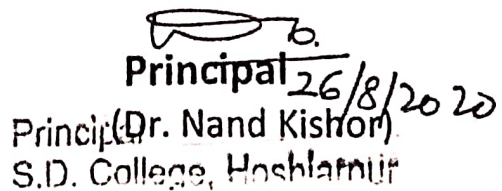 Principal
26/8/2020
Principal (Dr. Nand Kishor)
S.D. College,